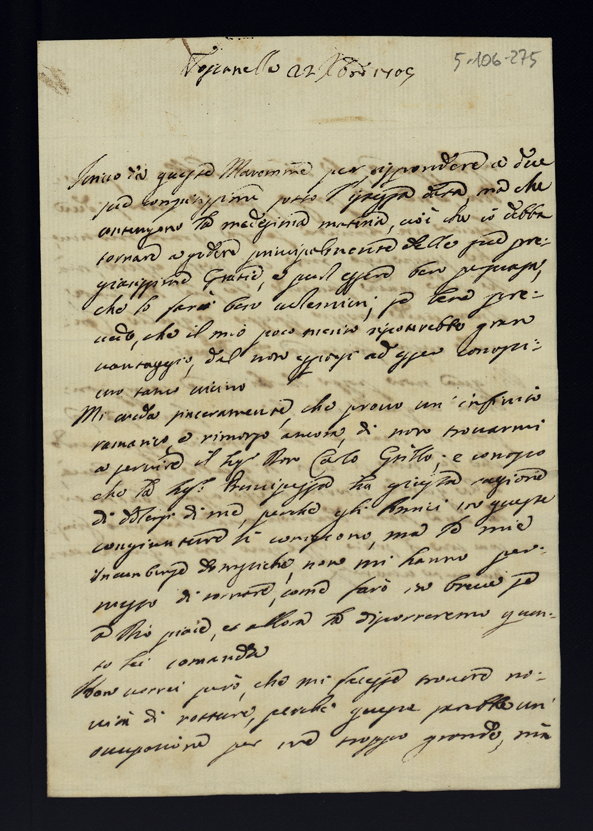 Toscanella 22 Xbre 1705
5-106-275
da queste Maremme per rispondere a due
sue sotto l'istessa data, ma che
contengono la medesima materia, cioè che io debba
tornare a godere principalmente delle sue pre-
giatissime Grazie, e può essere ben
che lo farò ben volentieri; se bene pre-
vedo, che il mio poco merito riporterebbe gran
vantaggio, dal non essergli ad esser conosci-
uto tanto vicino
Mi creda sinceramente, che provo un'infinito
ramarico, e rimorso ancora, di non trovarmi
a servire il Sigr Don Carlo Grillo; e conosco
che la Sigra Principessa ha giusta ragione
di dolersi di me, perche gli Amici in queste
congiunture si conoscono, ma le mie
incumbenze domestiche, non mi hanno per-
messo di tornare, come farò in breve se
a Dio piace, et allora la discorreremo quan-
to lei comanda
Non vorrei però, che mi facesse trovare no-
vità di rotture, perche queste sarebbe un'
occupazione per me troppo grande, ma